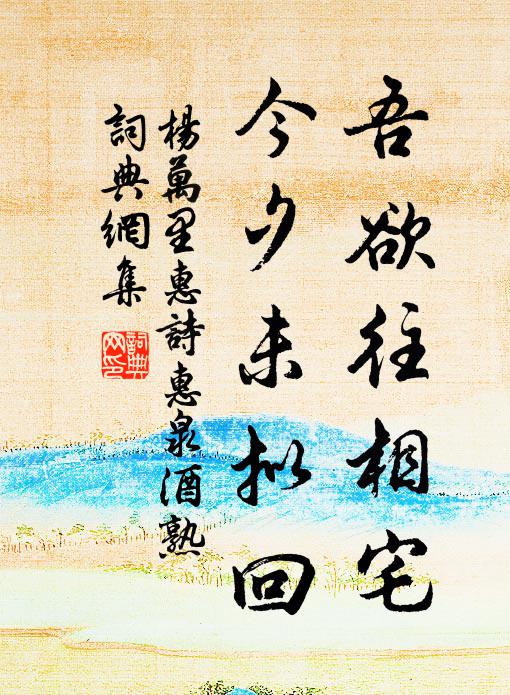 吾欲往相宅
今夕未拟回
楊萬里惠詩惠泉酒熟
詞典網集
詞典網印